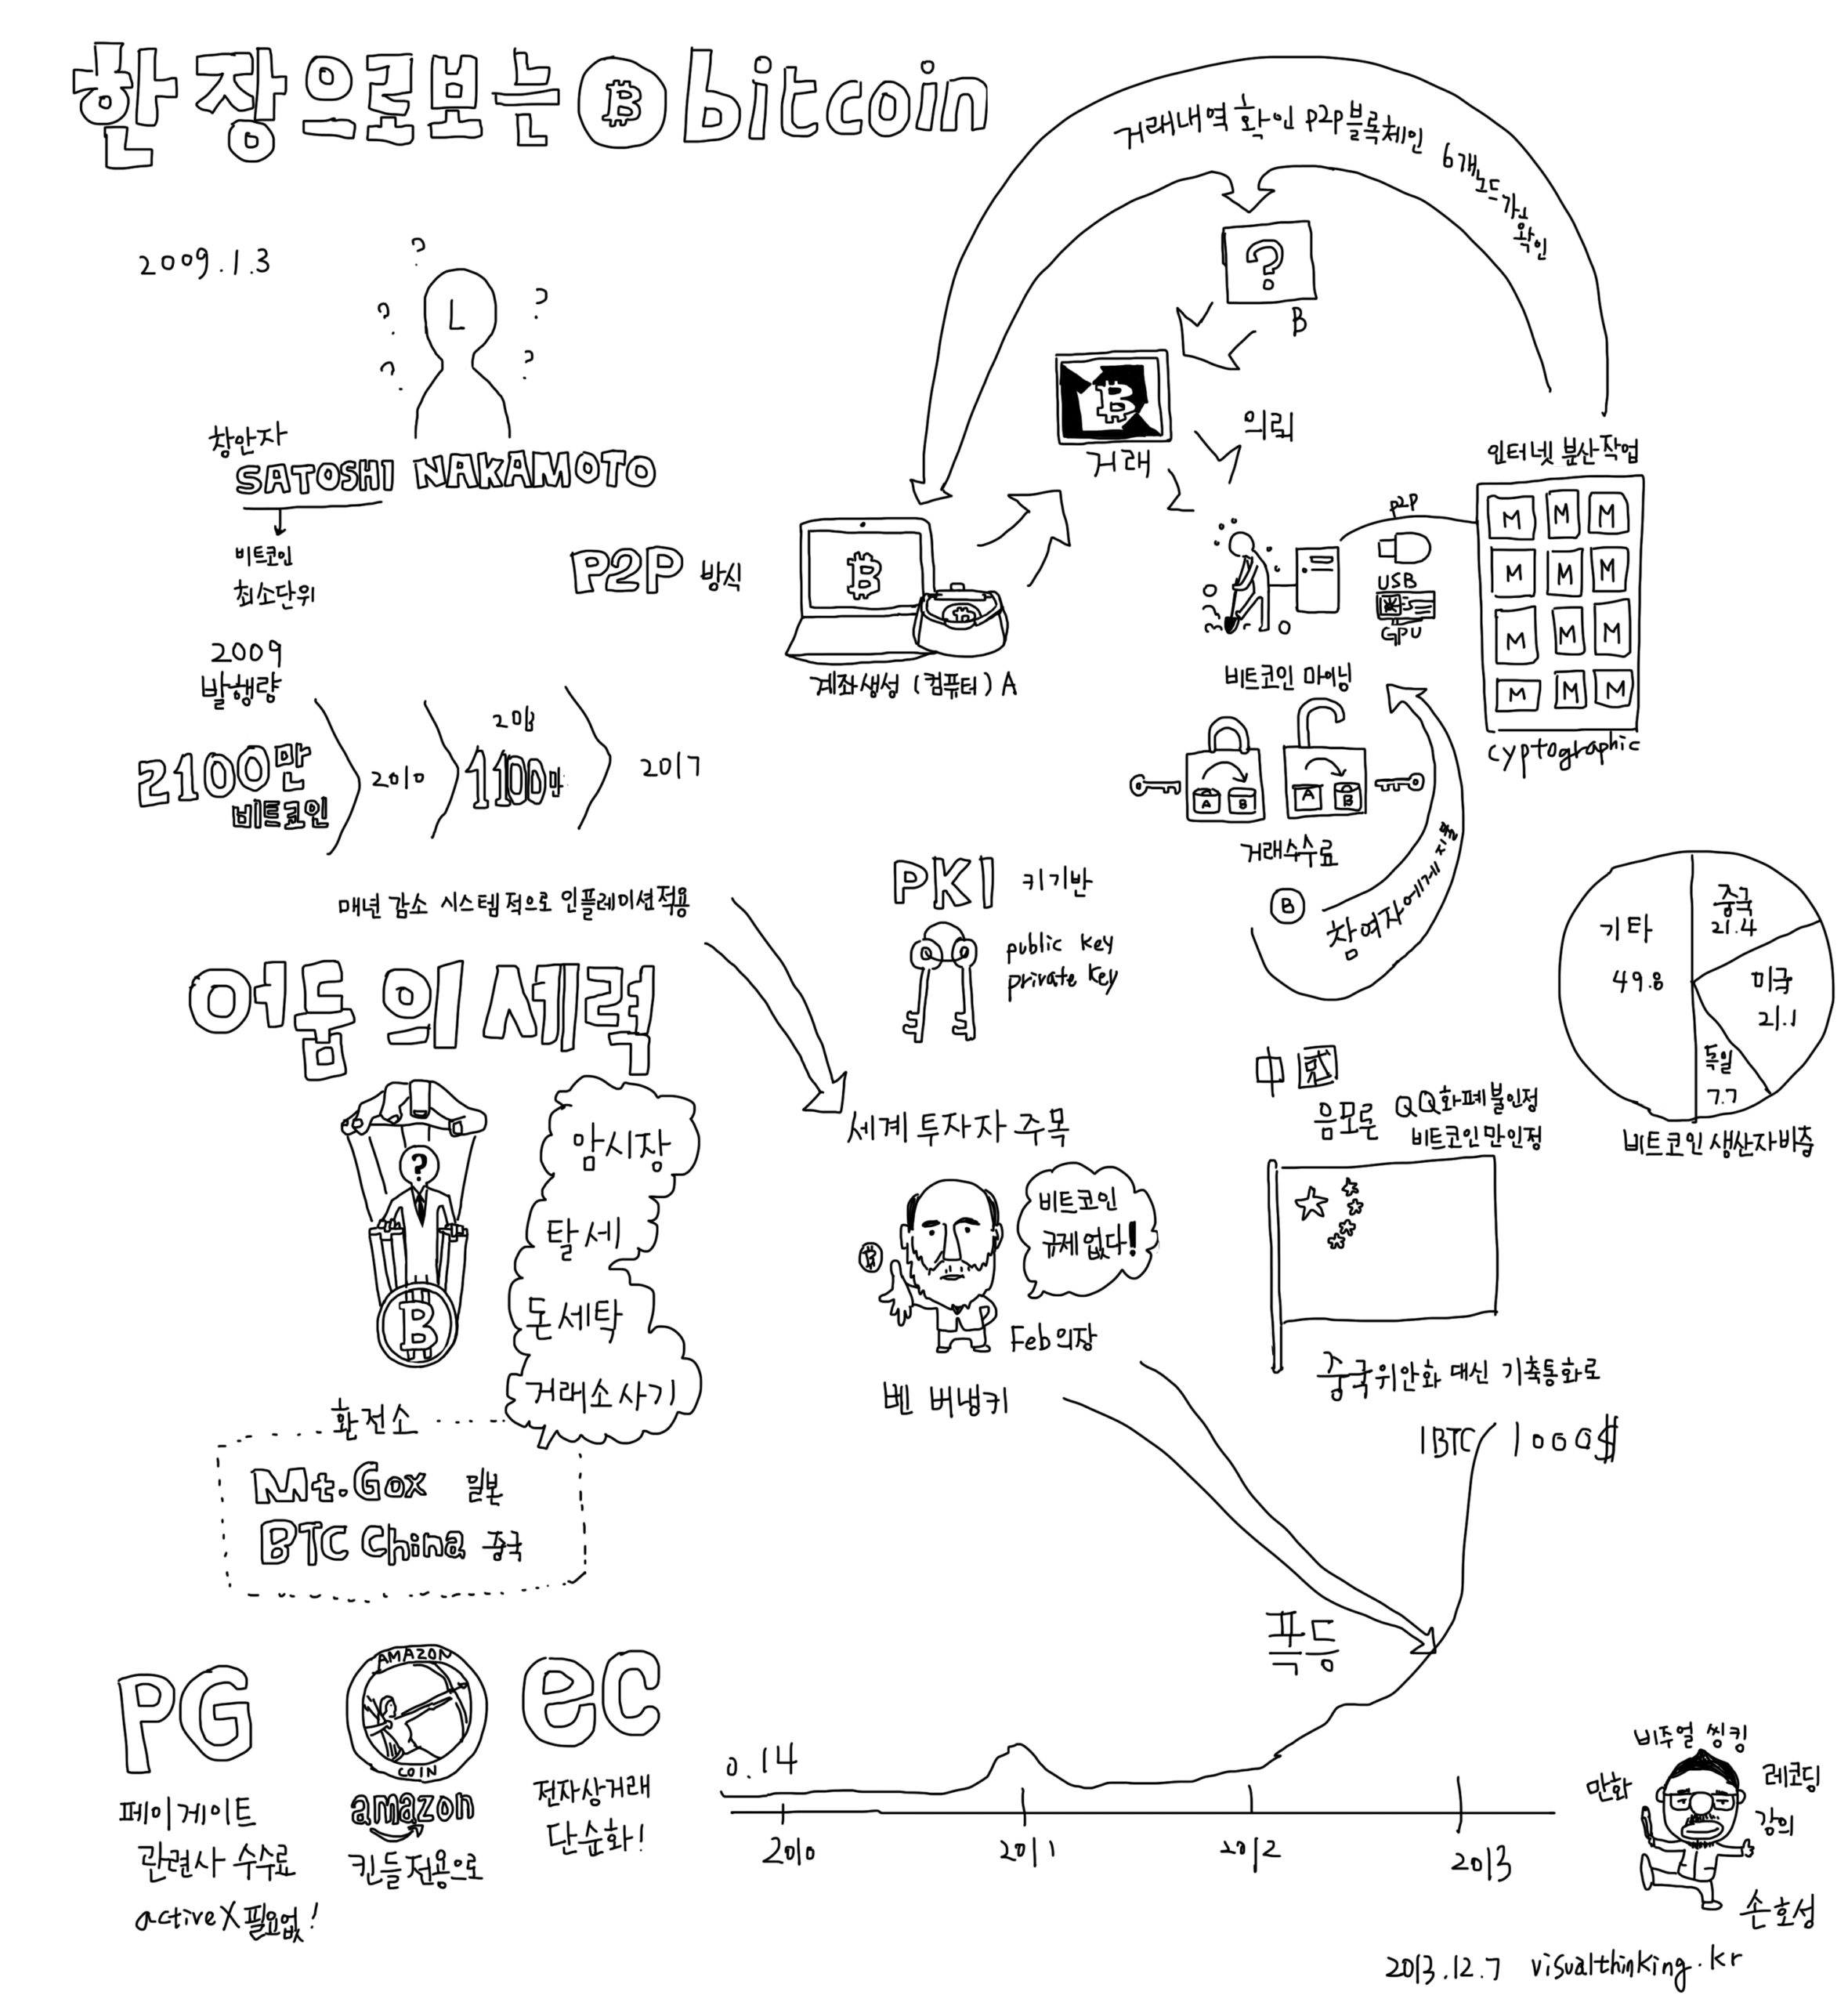 한 장으로보는 bitcoin
2009.1.3
창안자
SATOSHI NAKAMOTO
비트코인
최소단위
P2P 방식
2009
발행량
2100만
비트코인
2010
1100만
2017
매년 감소 시스템적으로 인플레이션적용
거래내역 확인 P2P블록체인 6개노드가 확인
?
B
거래
의뢰
계좌생성 (컴퓨터) A
비트코인 마이닝
P2P
USB
GPU
인터넷 분산작업
M M M
M M M
M M M
M M M
cyptographic
A B
A B
거래수수료
B
참여자에게 지불
PKI 키기반
public key
private key
기타
49.8
중국
21.4
미국
21.1
독일
7.7
비트코인 생산자비중
어둠의세력
?
암시장
탈세
돈세탁
거래소사기
환전소
Mt.Gox 일본
BTC China 중국
세계 투자자 주목
비트코인
규제없다!
Feb의장
벤 버냉키
음모론
QQ화폐불인정
비트코인만인정
중국위안화 대신 기축통화로
1BTC 1000$
폭등
0.14
2010
2011
2012
2013
PG
페이게이트
관련사 수수료
activeX필요없!
AMAZON
COIN
amazon
킨들전용으로
ec
전자상거래
단순화!
비주얼 씽킹
만화
레코딩
강의
손호성
2013.12.7 visualthinking.kr